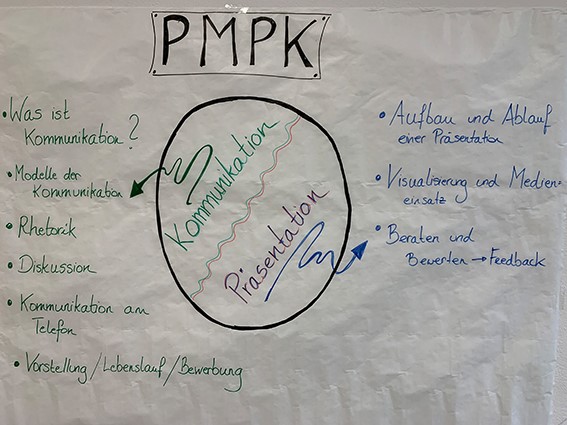 PMPK
• Was ist
Kommunikation?
• Modelle der
Kommunikation
• Rhetorik
• Diskussion
• Kommunikation am
Telefon
• Vorstellung/Lebenslauf/Bewerbung
Kommunikation
Präsentation
• Aufbau und Ablauf
einer Präsentation
• Visualisierung und Medien-
einsatz
• Beraten und
Bewerten → Feedback